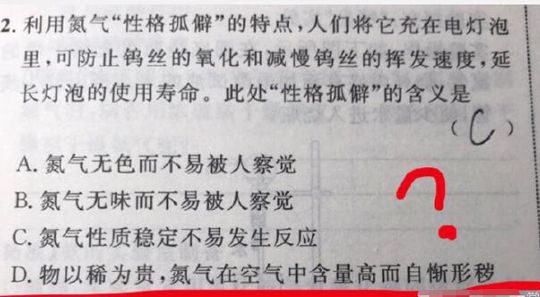 2. 利用氮气“性格孤僻”的特点,人们将它充在电灯泡
里,可防止钨丝的氧化和减慢钨丝的挥发速度,延
长灯泡的使用寿命。此处“性格孤僻”的含义是
(C)
A. 氮气无色而不易被人察觉
B. 氮气无味而不易被人察觉
C. 氮气性质稳定不易发生反应
D. 物以稀为贵,氮气在空气中含量高而自惭形秽
?